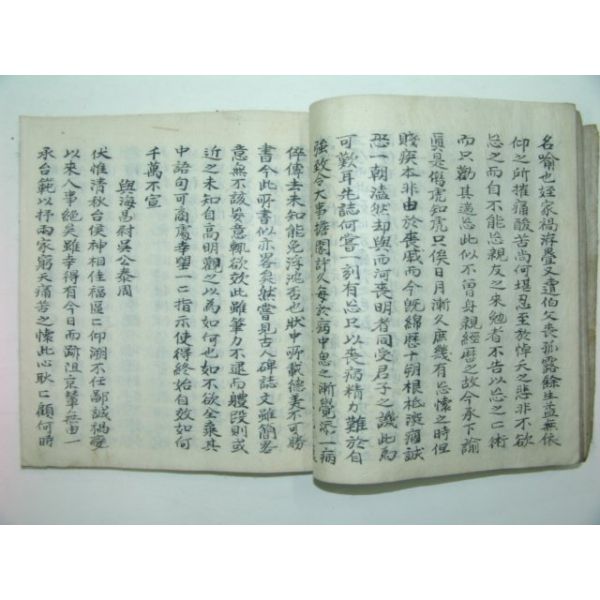 名喩也姪家禍浮疊又遭伯父喪孤露餘生益無依
仰之所摧痛酸苦尚何堪忍至於悼夭之悲非不欲
忘之而自不能忘親友之來勉者不告以忘之之術
而只勸其過忘此似不曾身親經歷之故今承下諭
眞是傷虎知虎只俟日月漸久庶幾有忘懷之時但
賤疾本非由於喪戚而今旣綿歷十朔根柢漸痼誠
恐一朝溘然却與西河喪明者同受君子之譏此爲
可歎耳先誌何嘗一刻有忘只以喪病精力難於自
強致令大事擔閣許久每於病中思之漸覺添一病
倅傳去未知能免浮沈否也狀中所載德美不可勝
書今此所書似亦畧矣然嘗見古人碑誌文雖簡畧
意無不該妄意輒欲效此雖筆力不逮而體段則或
近之未知自高明觀之以爲如何也如不欲全棄其
中語句可商處幸望一一指示使得終始自效如何
千萬不宣
與海昌尉吳公泰周
伏惟淸秋台侯神相佳福區區仰溯不任鄙誠禍罹
以來人事絶矣雖幸得有今日而跡阻京輦無由一
承台範以抒兩家窮天痛苦之懷此心耿耿顧何時